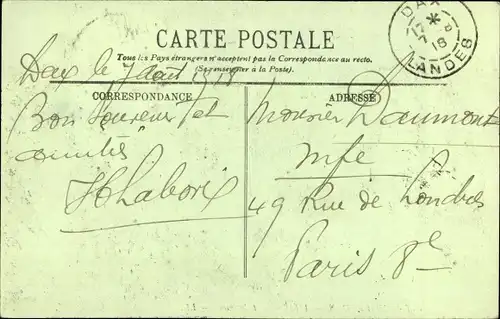 CARTE POSTALE
Tous les Pays étrangers n'acceptent pas la Correspondance au recto.
(Se renseigner à la Poste).
DAX
LANDES
Dax le 7 Août
CORRESPONDANCE
Bon Souvenir et
amitiés
ADRESSE
Monsieur Daumont
49 Rue de Londres
Paris 8e